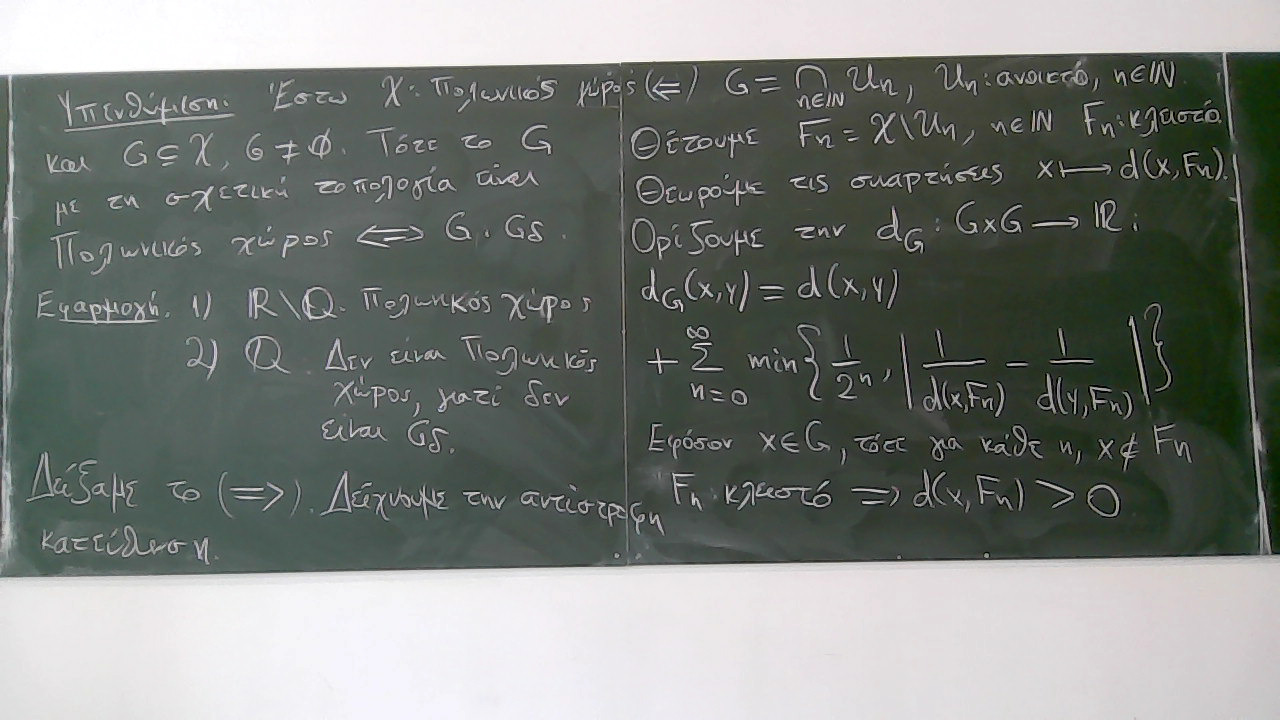 Υπενθύμιση: Έστω X: Πολωνικός χώρος
και G ⊆ X, G ≠ ∅. Τότε το G
με τη σχετική τοπολογία είναι
Πολωνικός χώρος ⟺ G: Gδ.
Εφαρμογή. 1) ℝ\ℚ. Πολωνικός χώρος
2) ℚ. Δεν είναι Πολωνικός
χώρος, γιατί δεν
είναι Gδ.
Δείξαμε το (⟹). Δείχνουμε την αντίστροφη
κατεύθυνση.
(⇐) G = ⋂_{n∈ℕ} Un, Un: ανοικτό, n∈ℕ
Θέτουμε Fn = X\Un, n∈ℕ Fn: κλειστό.
Θεωρούμε τις συναρτήσεις x ⟼ d(x,Fn).
Ορίζουμε την dG: G×G ⟶ ℝ:
dG(x,y) = d(x,y)
+ ∑_{n=0}^{∞} min{ 1/2^n, | 1/d(x,Fn) − 1/d(y,Fn) | }
Εφόσον x∈G, τότε για κάθε n, x∉Fn
Fn: κλειστό ⟹ d(x,Fn) > 0